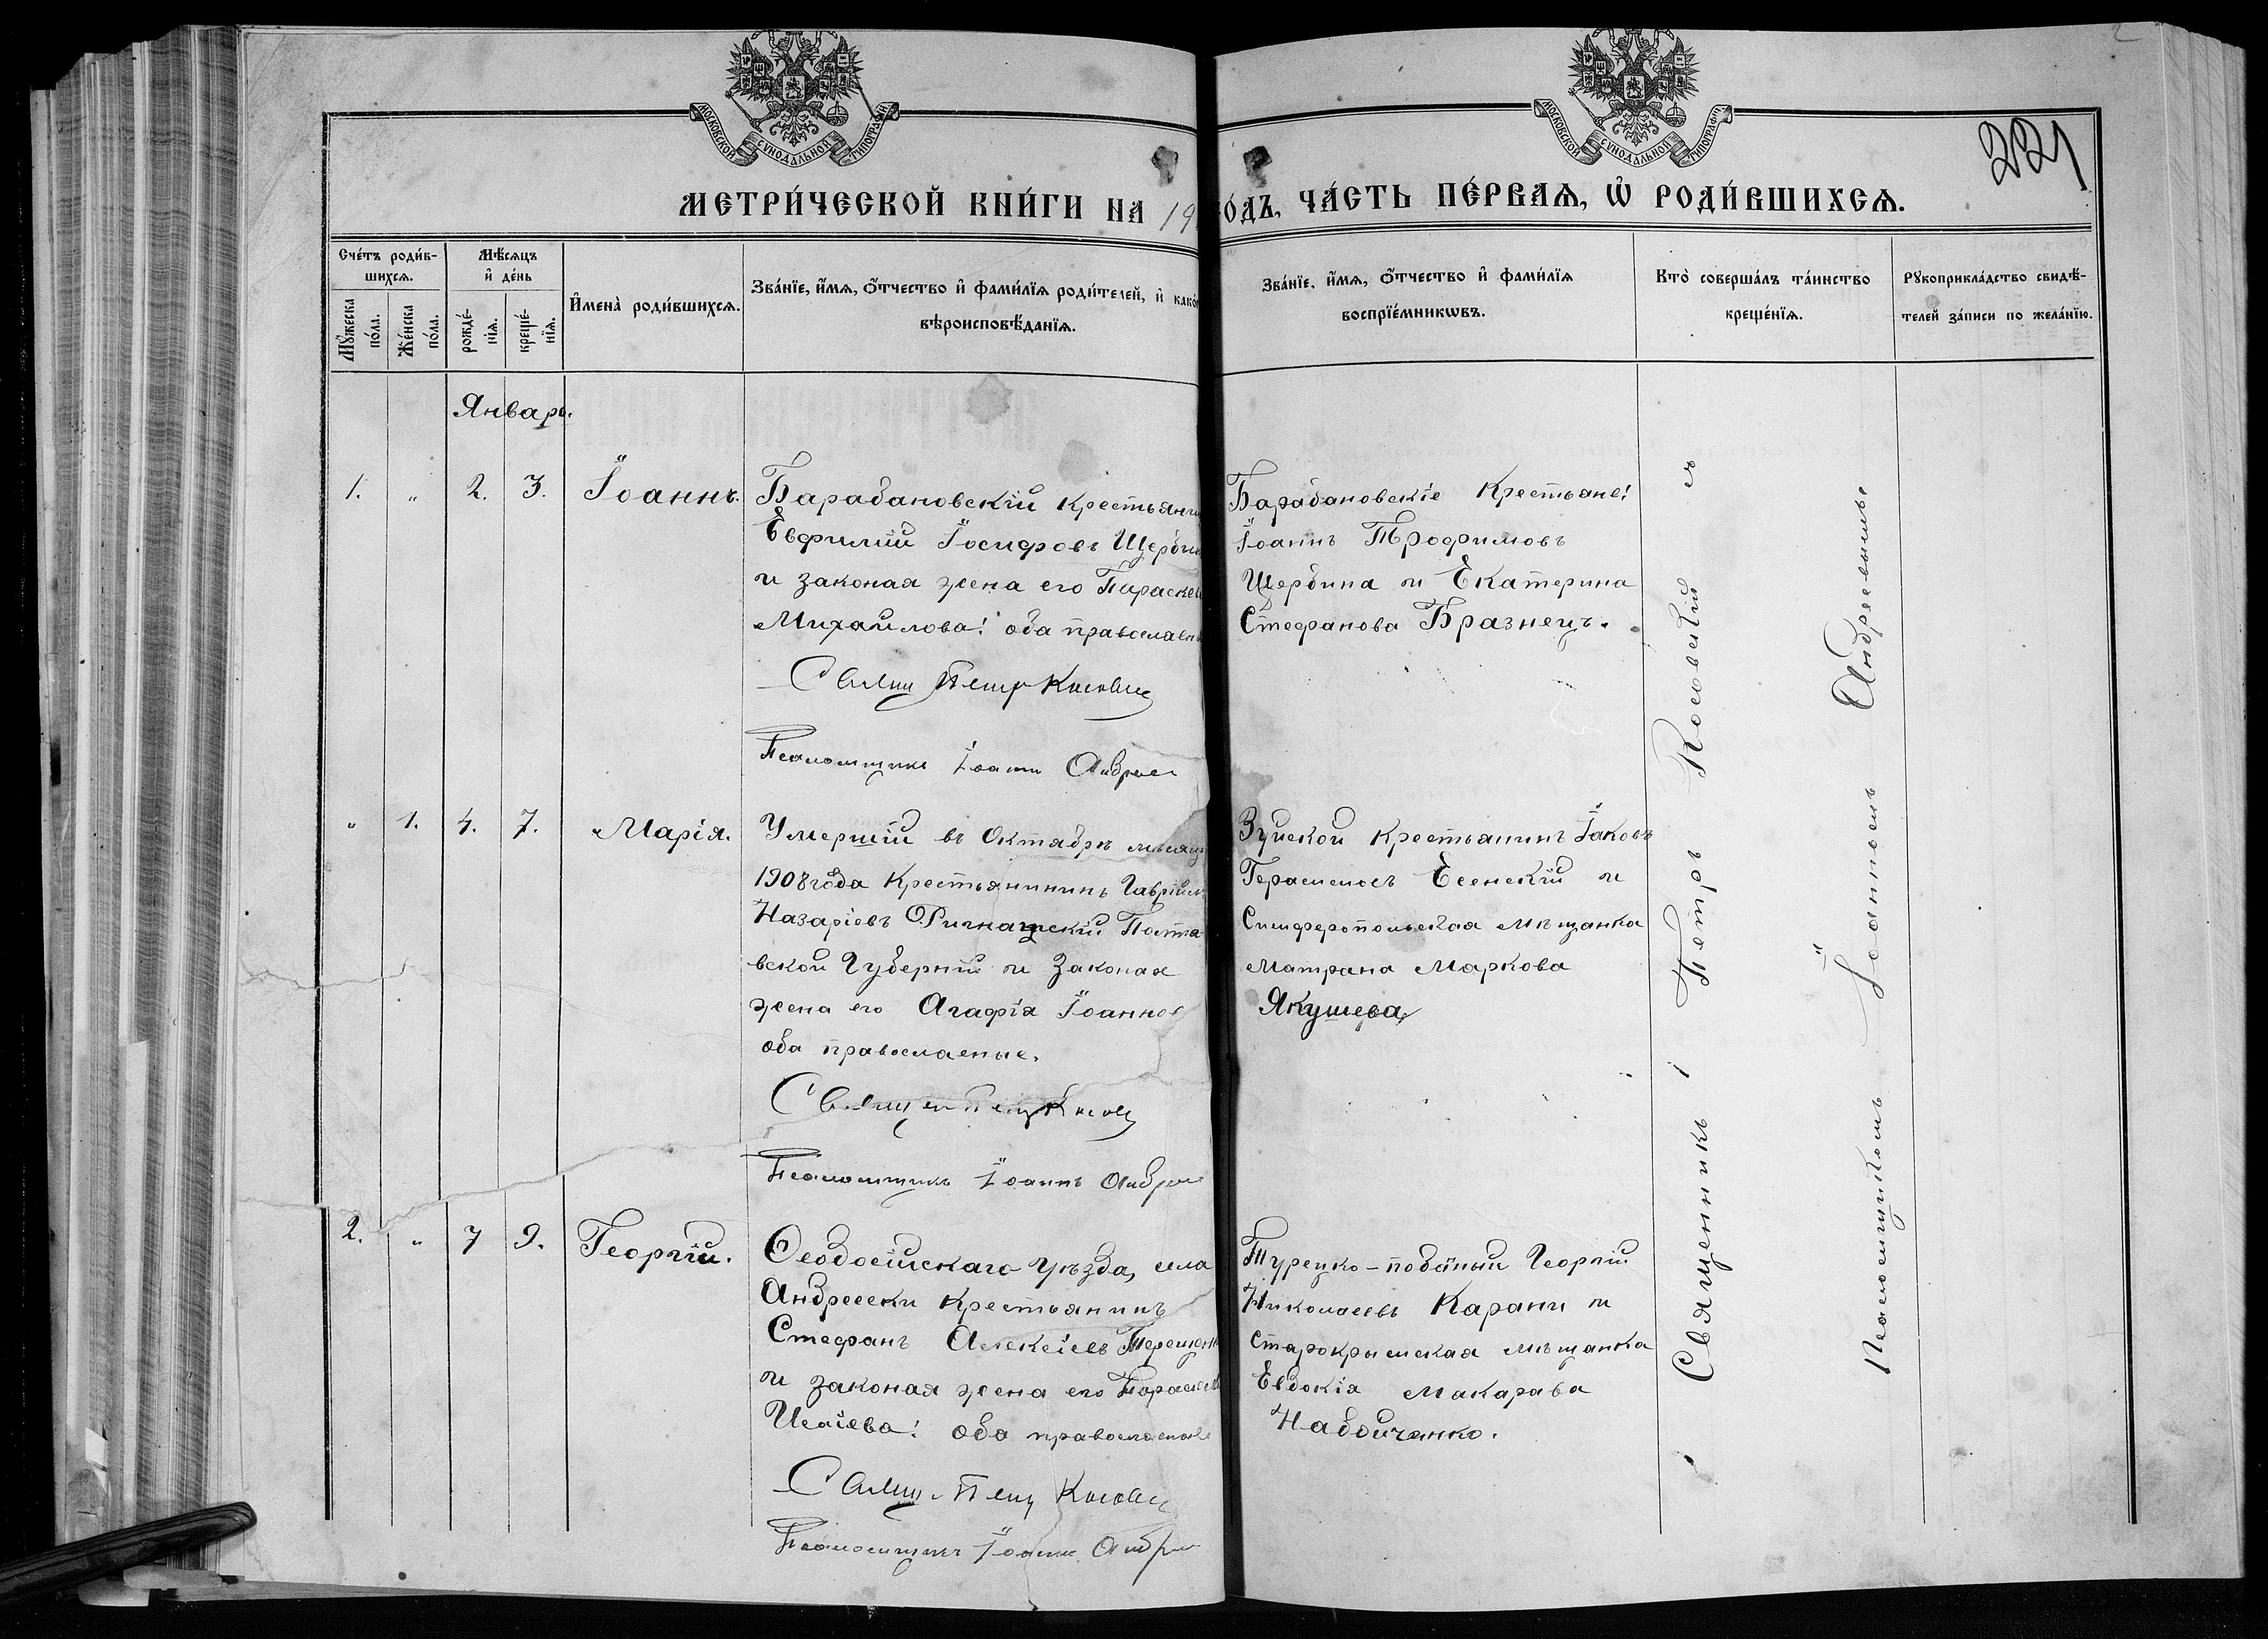 МОСКОВСКОЙ СУНОДАЛЬНОЙ ТИПОГРАФІИ
МОСКОВСКОЙ СУНОДАЛЬНОЙ ТИПОГРАФІИ
221
МЕТРИ́ЧЕСКОЙ КНИ́ГИ НА 19
ОДЪ, ЧА́СТЬ ПЕ́РВАѦ, Ѡ РОДИ́ВШИХСѦ.
Сче́тъ роди́в-
шихсѧ.
Мꙋ́жеска по́ла.
Же́нска по́ла.
Мѣ́сѧцъ
и҆ де́нь
рожде́-нїѧ.
креще́-нїѧ.
И҆мена̀ роди́вшихсѧ.
Зва́нїе, и҆́мѧ, ѻ҆́тчество и҆ фами́лїѧ роди́телей, и҆ како́
вѣроисповѣ́данїѧ.
Зва́нїе, и҆́мѧ, ѻ҆́тчество и҆ фами́лїѧ
воспрїе́мникѡвъ.
Кто̀ соверша́лъ та́инство
креще́нїѧ.
Рꙋкоприкла́дство свидѣ́-
телей за́писи по жела́нїю.
Январь.
1. " 2. 3. Іоаннъ.
Барабановскій крестьяни
Евфимій Іосифовъ Щерби
и законая жена его Параскев
Михайлова: оба православн
Свящ Петр Косовс
Псаломщикъ Іоанн Андрее
Барабановскіе Крестьяне:
Іоаннъ Трофимовъ
Щербина и Екатерина
Стефанова Бразнецъ.
" 1. 4. 7. Марія.
Умершій въ Октябрѣ мѣсяц
1908 года Крестьянининъ Гавріил
Назаріевъ Полта
вской Губерніи и Законая
жена его Агафія Іоаннов
оба православные.
Священ Петр Косов
Псаломщикъ Іоаннъ Андрее
Зуйской крестьянинъ Іаковъ
Герасимовъ Есенскій и
Симферопольская мѣщанка
Матрана Маркова
Якушева
2. " 7 9. Георгій.
Ѳеодосійскаго Уѣзда, села
Андреевки Крестьянинъ
Стефанъ Алексіевъ Терещен
и законая жена его Параскев
Исаіева: оба православные
Свящ. Петр Косовс
Псаломщикъ Іоаннъ Андре
Турецко-подáный Георгій
Николаевъ Карани и
Старокрымская мѣщанка
Евдокія Макарава
Набойченко.
Священникъ Петръ Косовскій съ
Псаломщикомъ Іоанномъ Андреевымъ